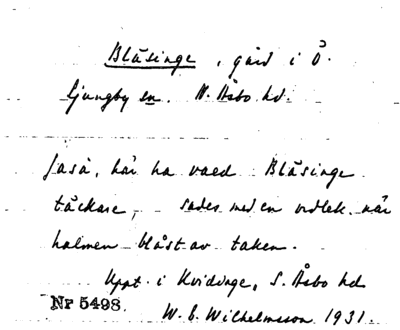 Blåsinge, gård i Ö.
Ljungby sn. N. Åsbo hd.
Jaså, här ha vaed Blåsinge
täckare, sades med en ordlek när
halmen blåst av taken.
Uppt. i Kvidinge, S. Åsbo hd
Nr 5498. W. E. Wilhelmsson 1931.